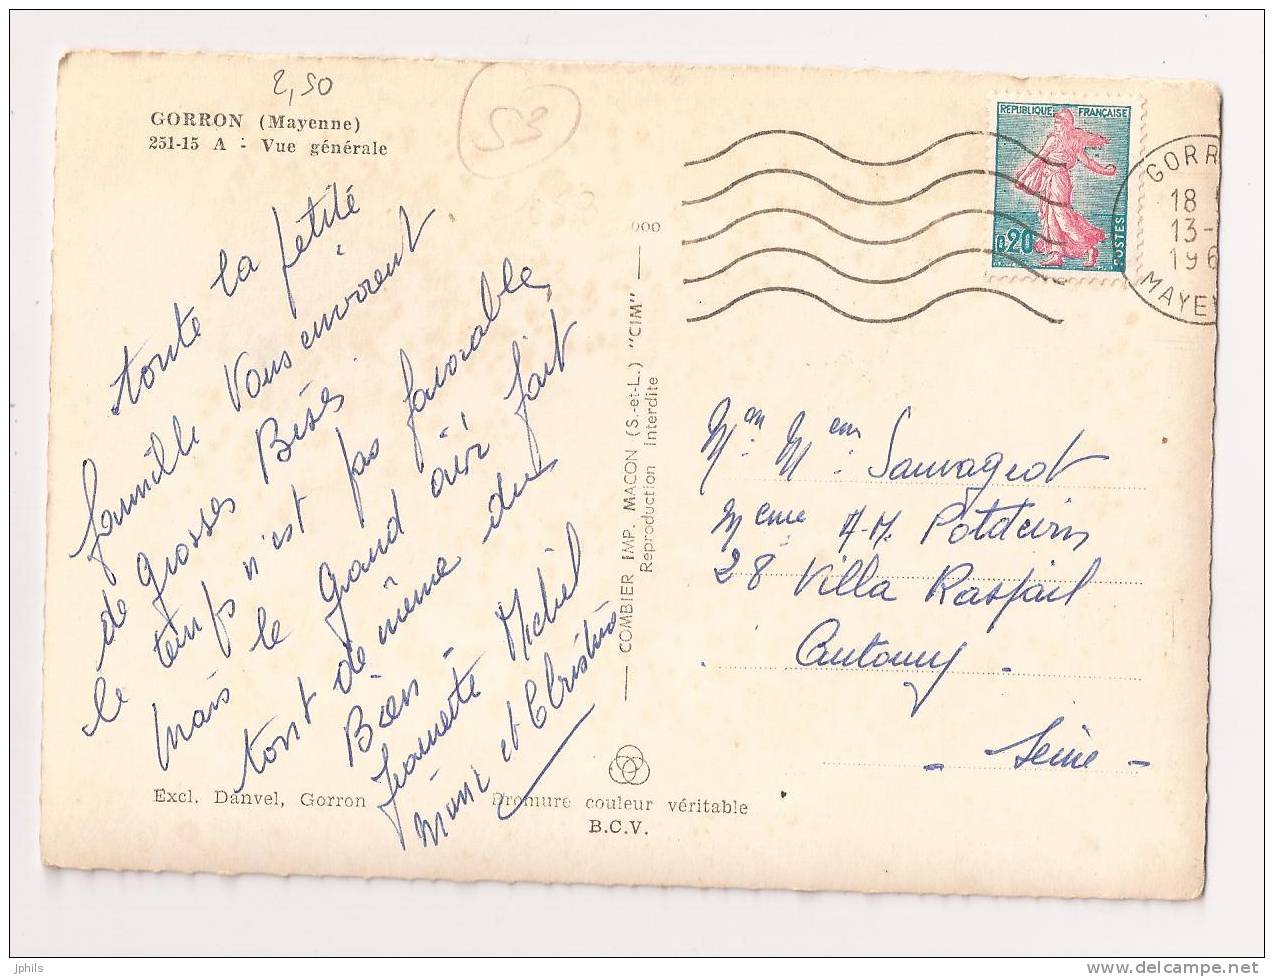 2,50
53
GORRON (Mayenne)
251-15 A - Vue générale
toute la petite
famille vous envoient
de grosses Bises
le temps n'est pas favorable,
mais le grand air fait
tout de même du
Bien -
Michel
Marc et Christine
COMBIER IMP. MACON (S.-et-L.) "CIM"
Reproduction Interdite
REPUBLIQUE FRANÇAISE
0,20
POSTES
GORR
18
13-
196
MAYE
Mr Mme Sauvageot
Meme A-M. Potdevin
28 Villa Raspail
Antony -
- Seine -
Excl. Danvel, Gorron
Bromure couleur véritable
B.C.V.
jphils
http://www.delcampe.net